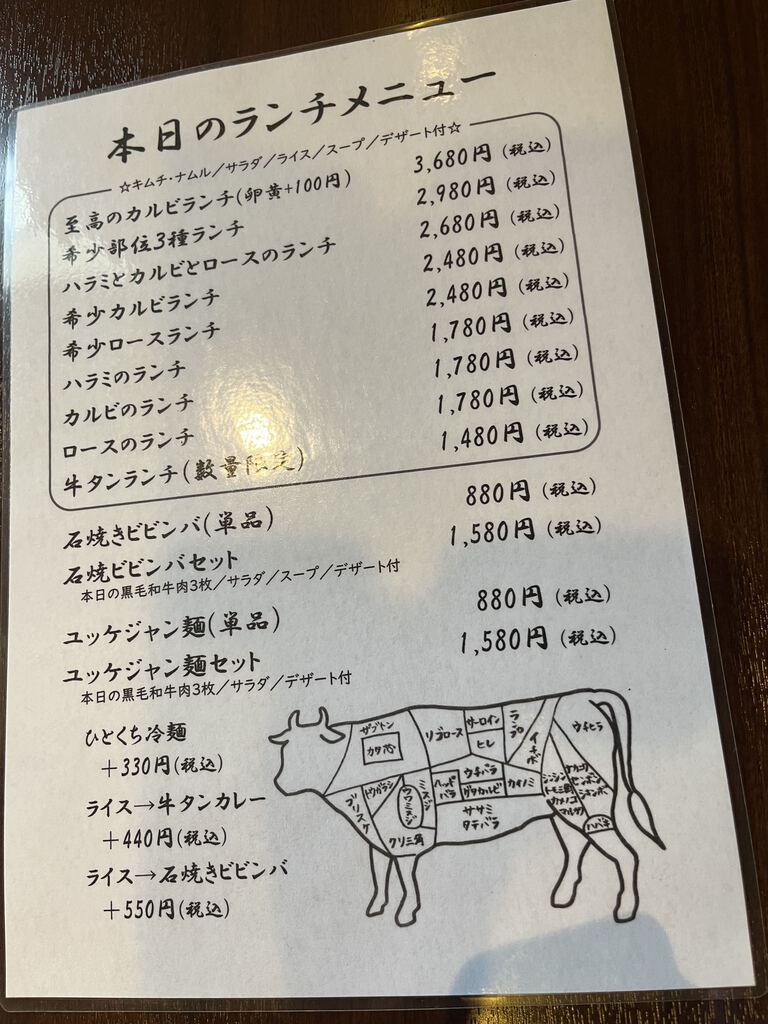 本日のランチメニュー
☆キムチ・ナムル／サラダ／ライス／スープ／デザート付☆
至高のカルビランチ(卵黄+100円) 3,680円(税込)
希少部位3種ランチ 2,980円(税込)
ハラミとカルビとロースのランチ 2,680円(税込)
希少カルビランチ 2,480円(税込)
希少ロースランチ 2,480円(税込)
ハラミのランチ 1,780円(税込)
カルビのランチ 1,780円(税込)
ロースのランチ 1,780円(税込)
牛タンランチ(数量限定) 1,480円(税込)
石焼きビビンバ(単品) 880円(税込)
石焼ビビンバセット 1,580円(税込)
本日の黒毛和牛肉3枚／サラダ／スープ／デザート付
ユッケジャン麺(単品) 880円(税込)
ユッケジャン麺セット 1,580円(税込)
本日の黒毛和牛肉3枚／サラダ／デザート付
ひとくち冷麺
+330円(税込)
ライス→牛タンカレー
+440円(税込)
ライス→石焼きビビンバ
+550円(税込)
ザブトン
カタ芯
リブロース
サーロイン
ヒレ
ランプ
イチボ
ウチヒラ
ブリスケ
トウガラシ
ウワミスジ
ミスジ
クリ三角
ヘッドバラ
ウチバラ
ゲタカルビ
カイノミ
ササミ
タテバラ
シンシン
トモ三角
カメノコ
マルカワ
センボン
ハバキ